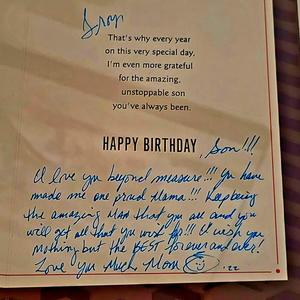 That's why every year
on this very special day,
I'm even more grateful
for the amazing,
unstoppable son
you've always been.
HAPPY BIRTHDAY, Son!!!
I love you beyond measure!!! You have
made me one proud Mama!!! Keep being
the amazing MAN that you are and you
will get all that you wish for!!! I wish you
nothing but the BEST forever and ever!
Love You Much, Mom
'22